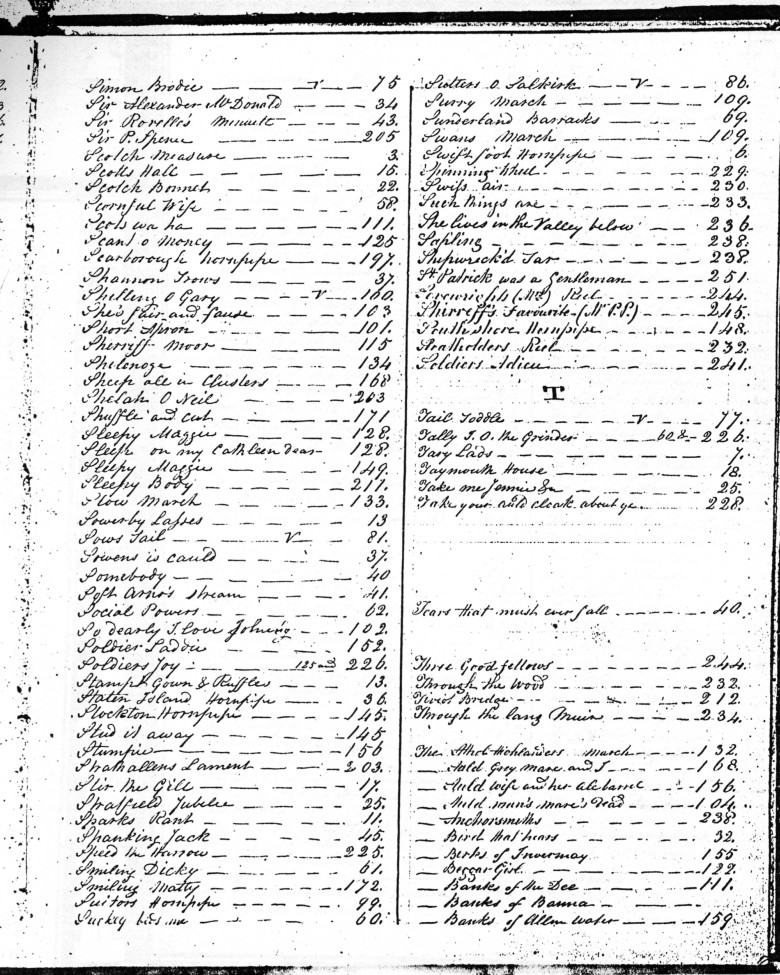 Simon Brodie — v — 75
Sir Alexander McDonald — — — 34
Sir Rovelle's Minuett — — — 43.
Sir P. Spence — — — — 205
Scotch Measure — — — — 3.
Scotts Hall — — — — 15.
Scotch Bonnet — — — — 22.
Scornful Wife — — — — 58.
Scots wa ha — — — — 111.
Scant o Money — — — — 125
Scarborough hornpipe — — — 197.
Shannon Trows — — — 37.
Shelling O Gary — v — 160.
She's fair and fause — — — 103
Short Apron — — — — 101.
Sherriff Moor — — — — 115
— — — — 134
Sheep all in Clusters — — — 168
Shelah O Neil — — — — 203
Shuffle and cut — — — — 171
Sleepy Maggie — — — — 128.
Sleep on my Cathleen dear — — 128.
Sleepy Maggie — — — — 149.
Sleepy Body — — — — 211.
Slow March — — — — 133.
Sowerby Lasses — — — — 13
Sows Tail — v — 81.
Sowens is cauld — — — 37.
Somebody — — — — 40
Soft Arno's stream — — — 41.
Social Powers — — — — 62.
So dearly I love — — 102.
Soldier Laddie — — — — 152.
Soldiers Joy — — 125 and 226.
Stamp Gown & Ruffles — — 13.
Staten Island Hornpipe — — 36.
Stockton Hornpipe — — — 145.
Stud it away — — — — 145
Stumpie — — — — 156
Strathallens Lament — — — 203.
Stir the Gill — — — — 17.
Stratfield Jubilee — — — 25.
Sparks Rant — — — — 11.
Spanking Jack — — — — 45.
Speed the Harrow — — — 225.
Smiling Dicky — — — — 61.
Smiling Matty — — — — 172.
Suitors Hornpipe — — — 99.
Suckey bids me — — — — 60.
Sutters O Salkirk — v — 86.
Surry March — — — — 109.
Sunderland Barracks — — — 69.
Swans March — — — — 109.
Swift foot Hornpipe — — — 6.
Spinning Wheel — — — — 229.
Swiss air — — — — 230.
Such things are — — — — 233.
She lives in the Valley below — — 236.
Sapling — — — — 238.
Shipwreck'd Tar — — — — 238.
St. Patrick was a Gentleman — — 251.
(Mr) Reel — — — 244.
Shirreff's Favourite (Mr P.P.) — — 245.
Hornpipe — — — 148.
Reel — — — — 232.
Soldiers Adieu — — — — 241.
T
Tail Toddle — v — 77.
Tally I. O. the Grinder — 60 & 226.
Tary Lads — — — — 7.
Taymouth House — — — — 18.
Take me Jennie &c — — — — 25.
Take your auld cloak about ye — — 228.
Tears that must ever fall — — — 40.
Three Good fellows — — — — 244.
Through the Wood — — — — 232.
Bridge — — — — 212.
Through the lang Muir — — — 234.
The Athol Highlanders march — — 132.
— Auld Grey mare and I — — — 168.
— Auld wife and her ale barrel — — 156.
— Auld man's mare's dead — — 104.
— Anchorsmiths — — — — 238.
— Bird that hears — — — 32.
— Berks of Invermay — — — 155
— Beggar Girl — — — — 122.
— Banks of the Dee — — — 111.
— Banks of Banna — — — —
— Banks of Allan Water — — — 159